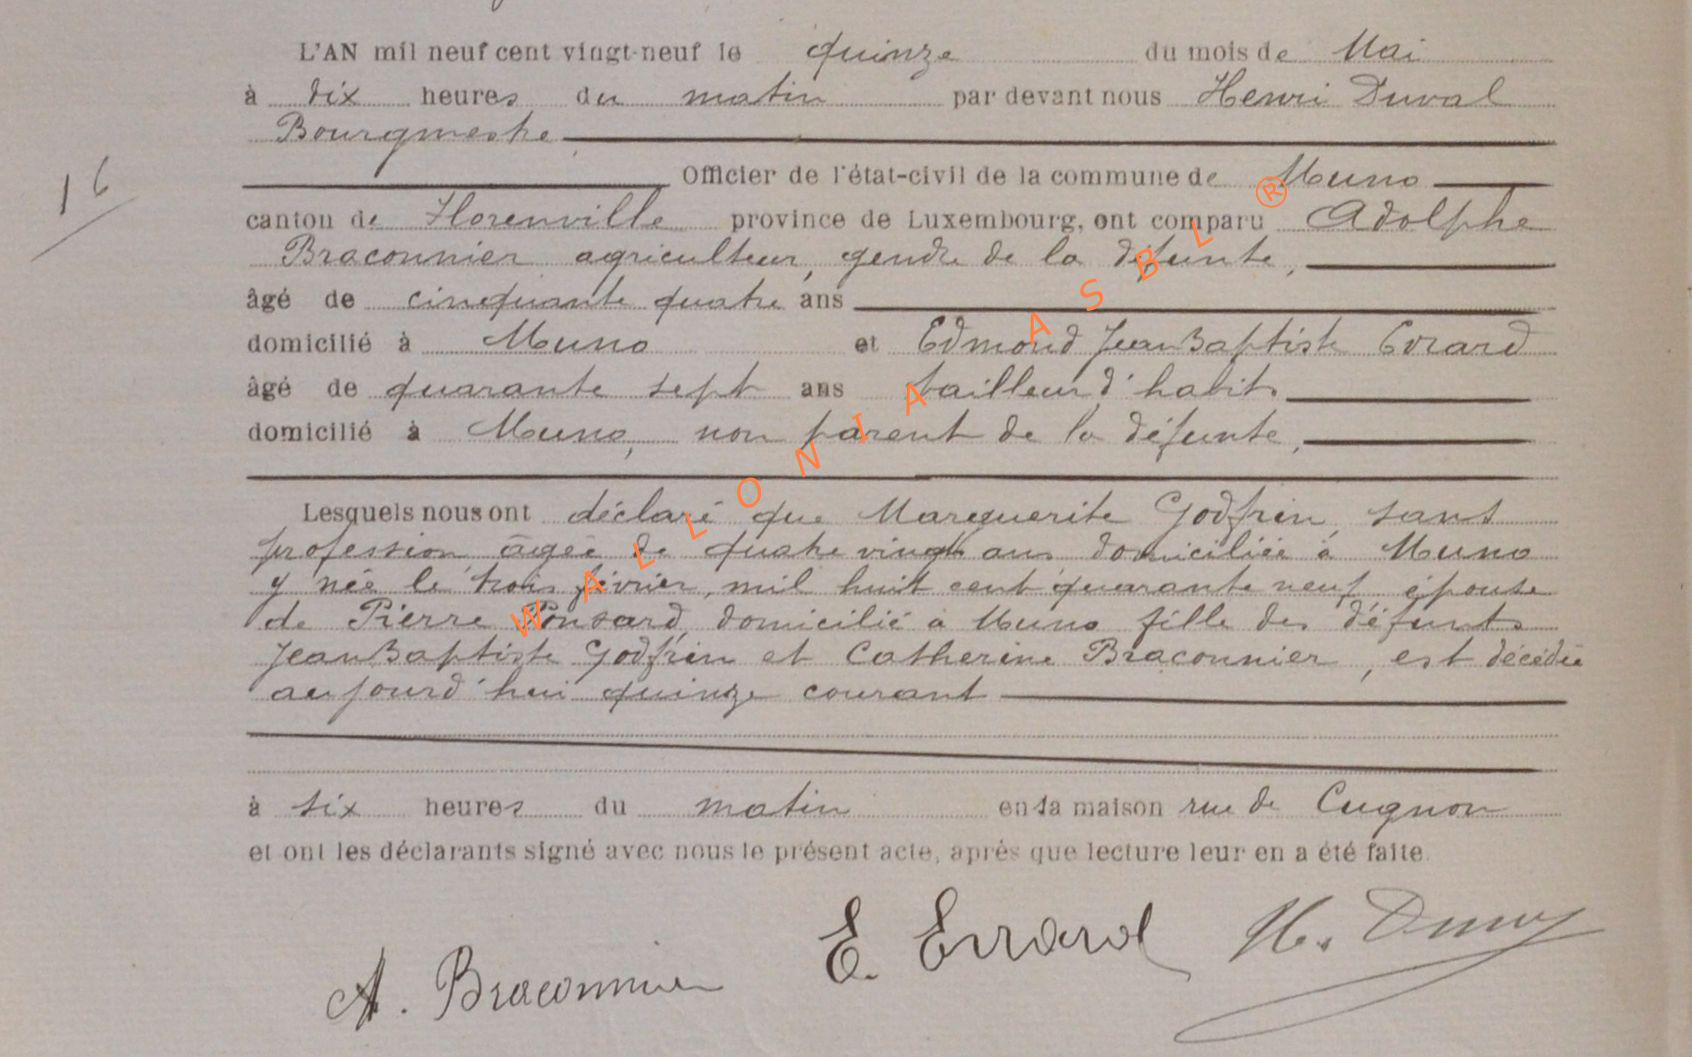 L'AN mil neuf cent vingt-neuf le quinze du mois de Mai
à dix heures du matin par devant nous Henri Duval
Bourgmestre
16
Officier de l'état-civil de la commune de Muno
canton de Florenville province de Luxembourg, ont comparu Adolphe
Braconnier agriculteur, gendre de la défunte,
âgé de cinquante quatre ans
domicilié à Muno et Edmond Jean Baptiste Evrard
âgé de quarante sept ans tailleur d'habits
domicilié à Muno, non parent de la défunte,
Lesquels nous ont déclaré que Marguerite Godfrin, sans
profession âgée de quatre vingts ans domiciliée à Muno
y née le trois février, mil huit cent quarante neuf épouse
de Pierre Ponsard, domicilié à Muno fille des défunts
Jean Baptiste Godfrin et Catherine Braconnier, est décédée
aujourd'hui quinze courant
à six heures du matin en sa maison rue de Cugnon
et ont les déclarants signé avec nous le présent acte, après que lecture leur en a été faite.
A. Braconnier E. Evrard H. Duval
WALLONIA ASBL ®